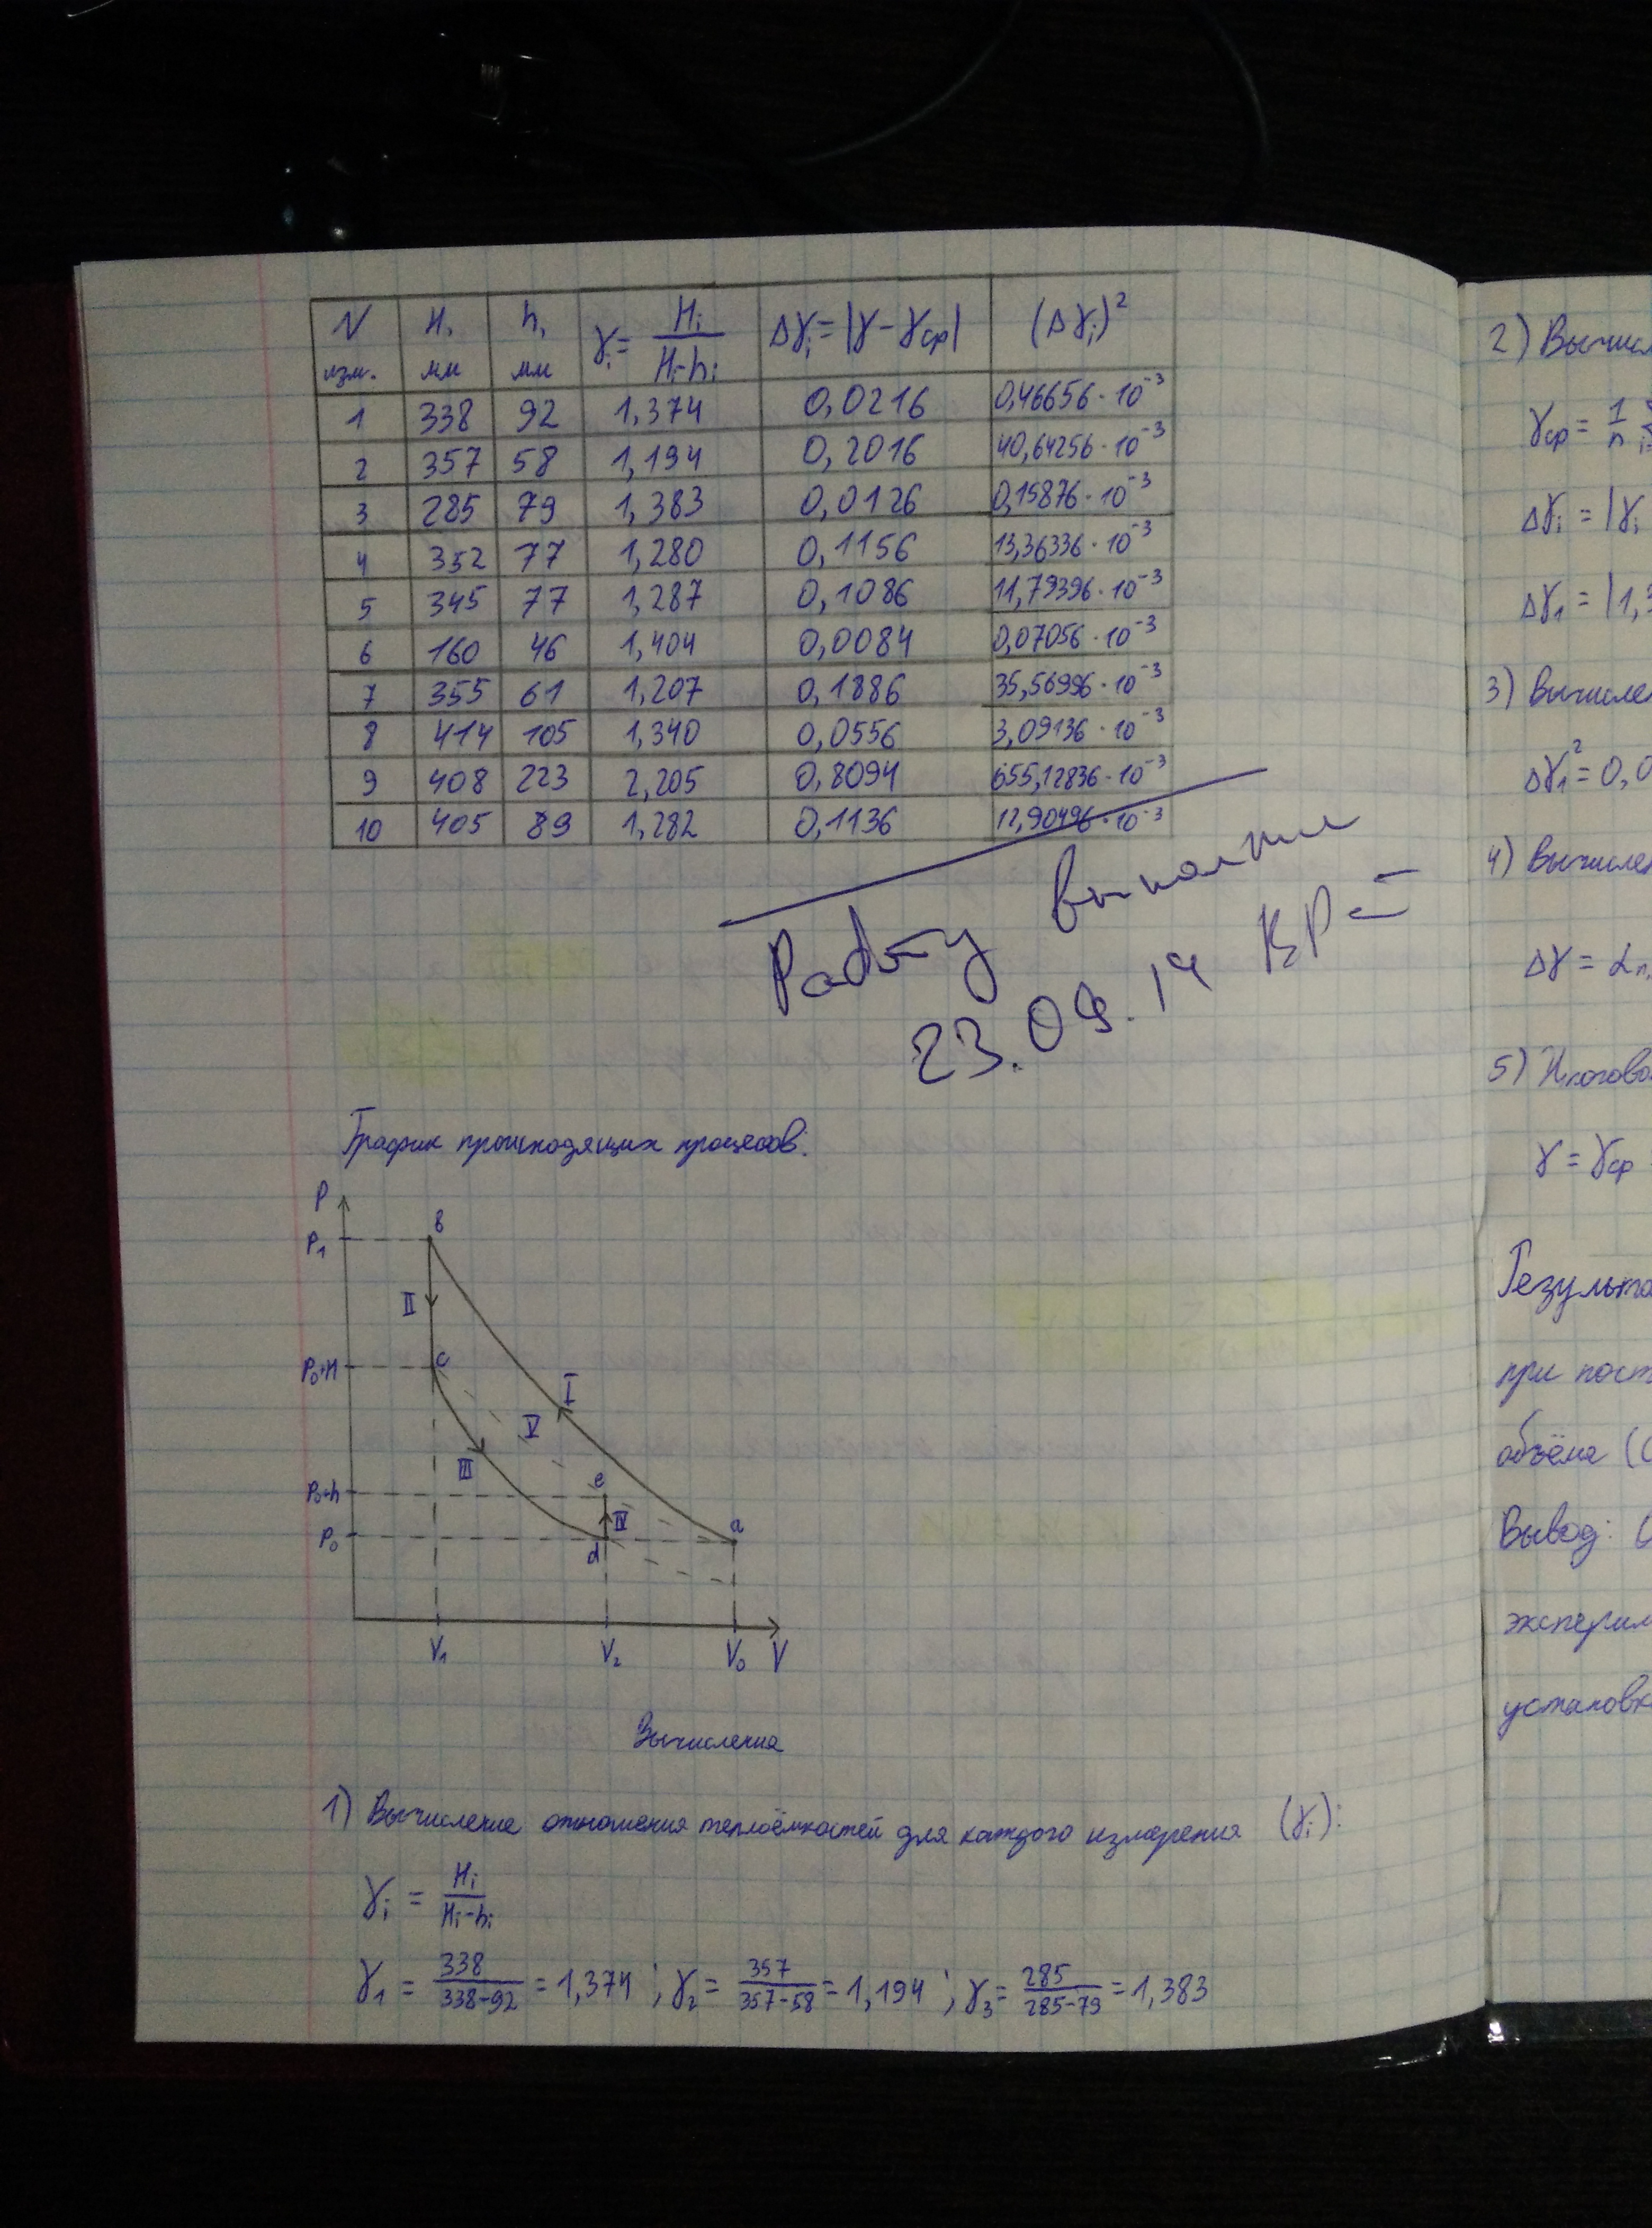 N изм. H, мм h, мм γi = Hi / Hi-hi Δγi = |γ-γср| (Δγi)²
1 338 92 1,374 0,0216 0,46656·10⁻³
2 357 58 1,194 0,2016 40,64256·10⁻³
3 285 79 1,383 0,0126 0,15876·10⁻³
4 352 77 1,280 0,1156 13,36336·10⁻³
5 345 77 1,287 0,1086 11,79396·10⁻³
6 160 46 1,404 0,0084 0,07056·10⁻³
7 355 61 1,207 0,1886 35,56996·10⁻³
8 414 105 1,340 0,0556 3,09136·10⁻³
9 408 223 2,205 0,8094 655,12836·10⁻³
10 405 89 1,282 0,1136 12,90496·10⁻³
Работу
23.09.14
График происходящих процесов:
P
P₁ b
II
P₀+H c
I
V
III
P₀+h e
IV
P₀ d a
V₁ V₂ V₀ V
Вычисления
1) Вычисление отношения теплоёмкостей для каждого измерения (γi):
γi = Hi / Hi-hi
γ₁ = 338 / 338-92 = 1,374 ; γ₂ = 357 / 357-58 = 1,194 ; γ₃ = 285 / 285-79 = 1,383
2) Вычисл
γср = 1/n
Δγi = |γi
Δγ₁ = |1,3
3) Вычисле
Δγ₁² = 0,0
4) Вычисле
Δγ = αn,
5) Итогово
γ = γср
Результа
при пост
объёме (C
Вывод:
эксперим
установк